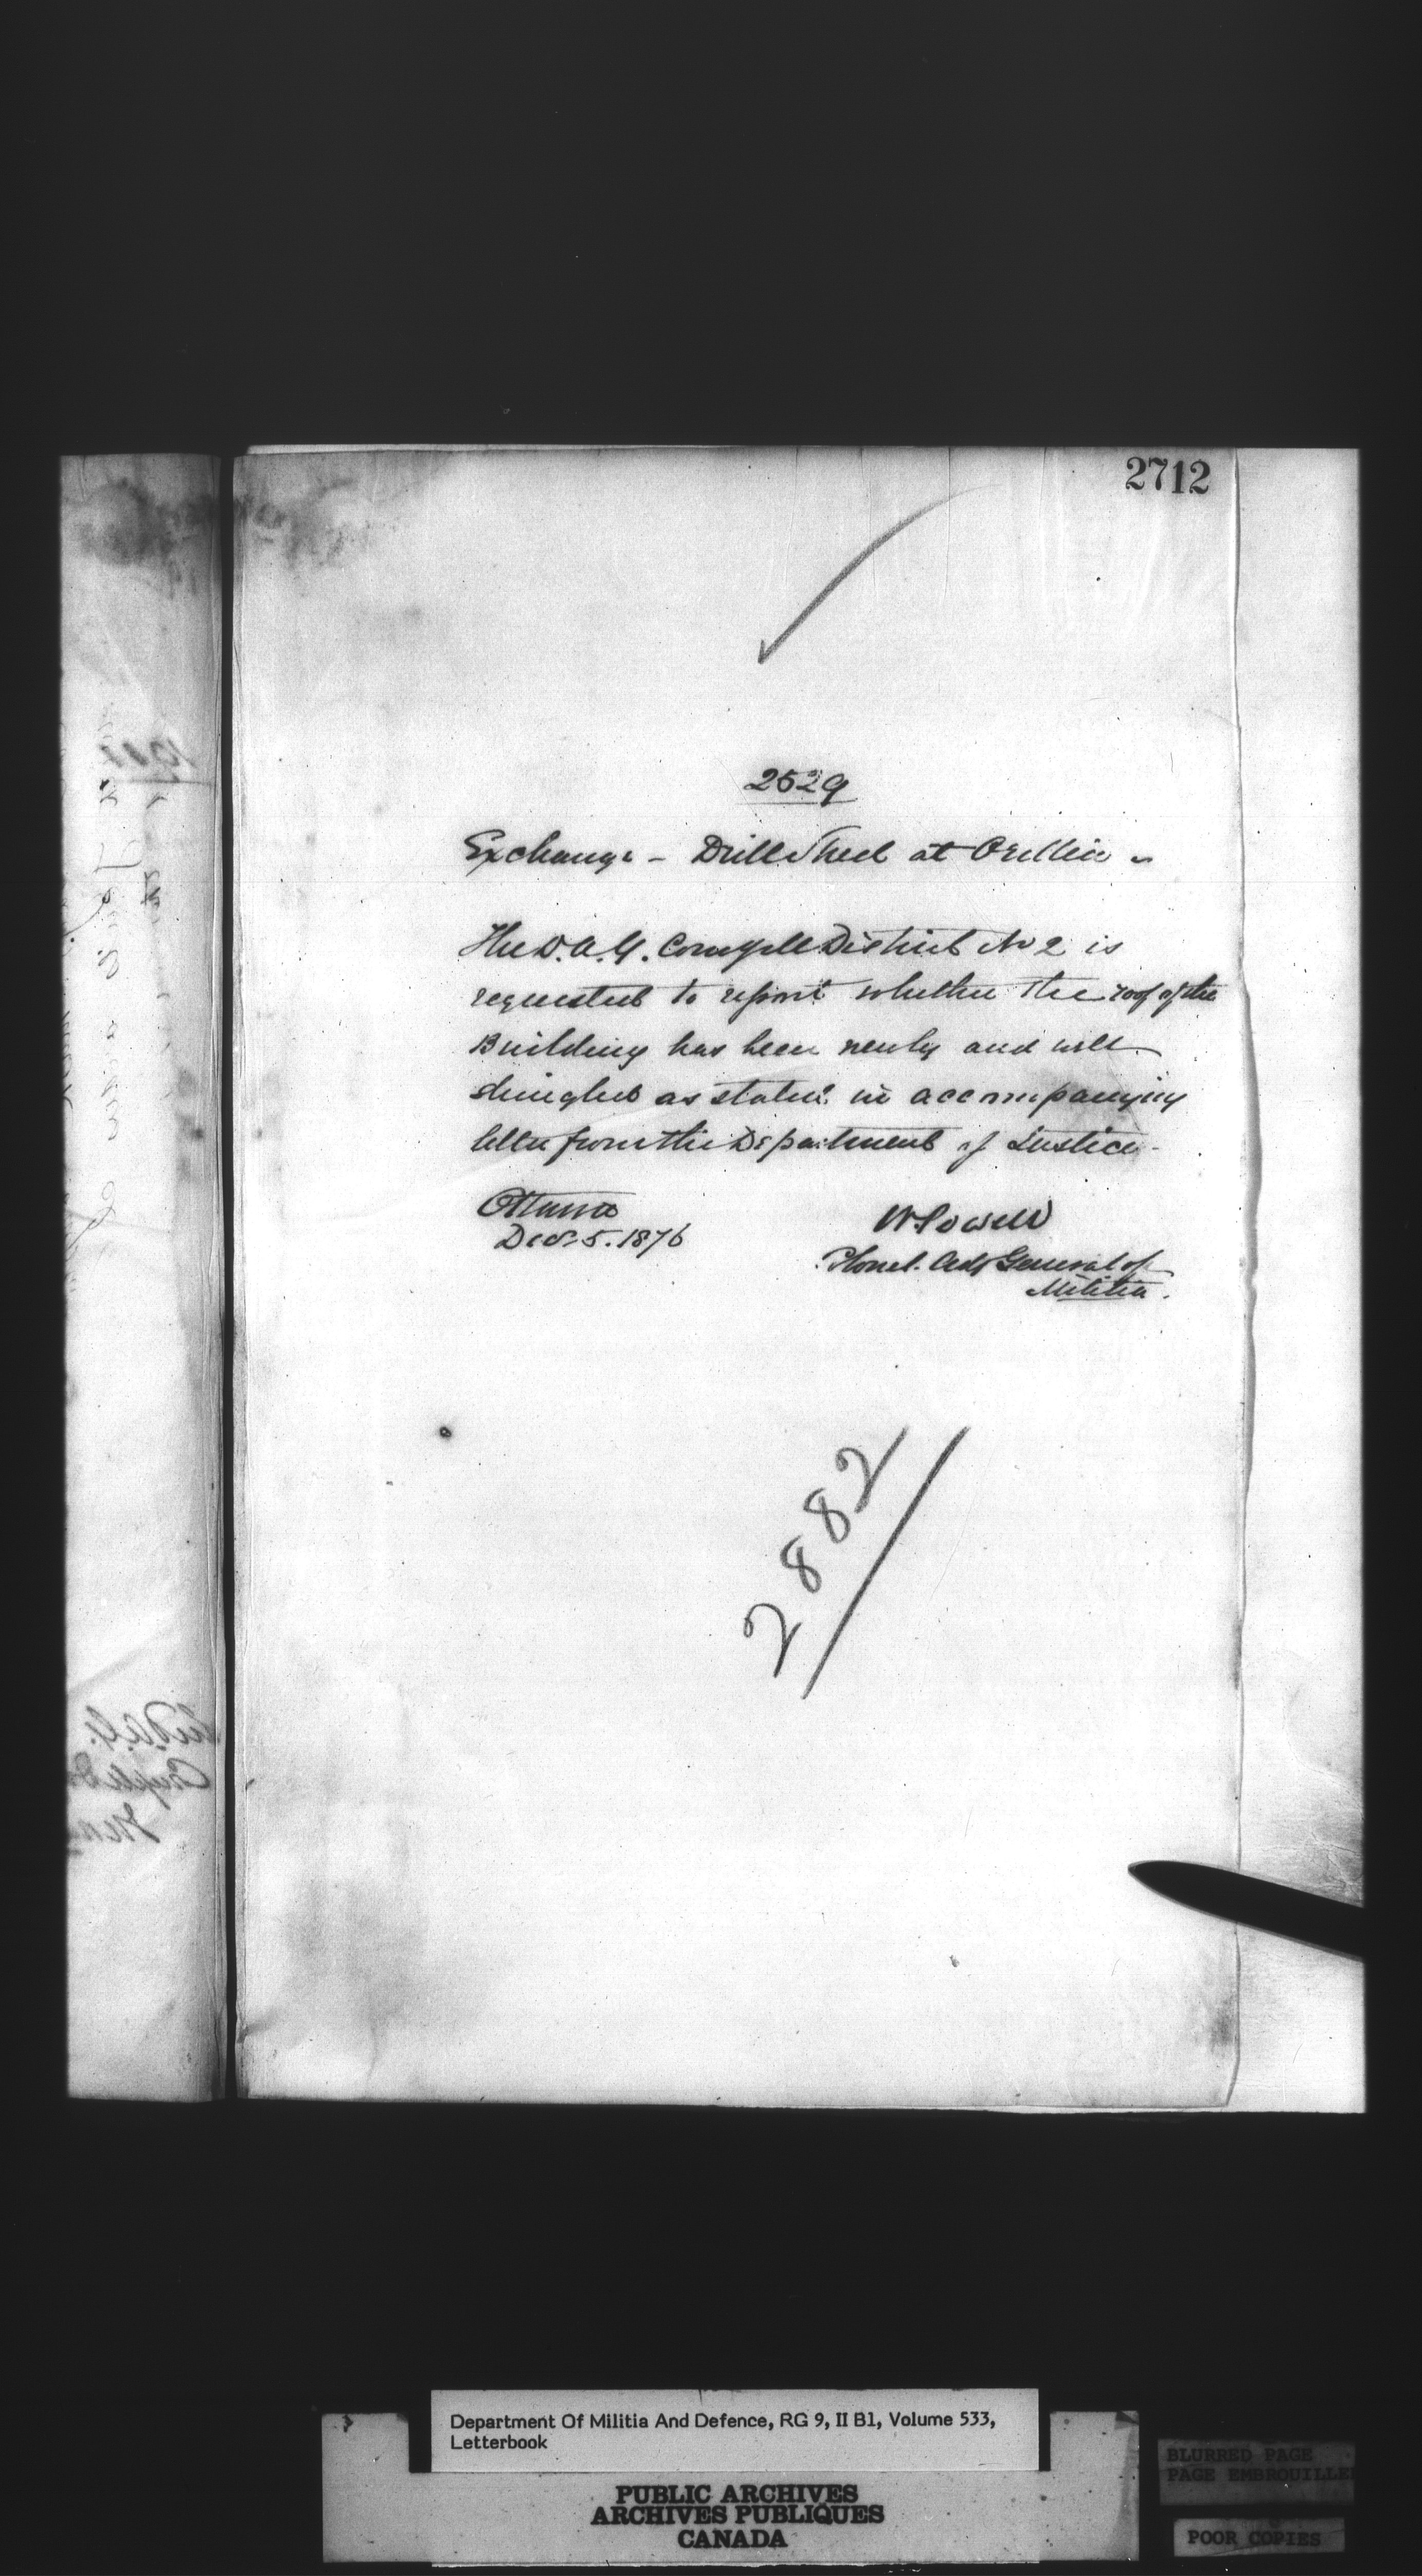 2712
2529
Exchange - Drill Shed at Orillia -
The D.A.G. Comg Mil District No 2 is
requested to report whether the roof of the
Building has been newly and well
shingled as stated in accompanying
letter from the Department of Justice -
Ottawa
Dec. 5. 1876
W. Powell
Colonel. Adj General of
Militia.
2882
Department Of Militia And Defence, RG 9, II B1, Volume 533,
Letterbook
PUBLIC ARCHIVES
ARCHIVES PUBLIQUES
CANADA
BLURRED PAGE
PAGE EMBROUILLEE
POOR COPIES